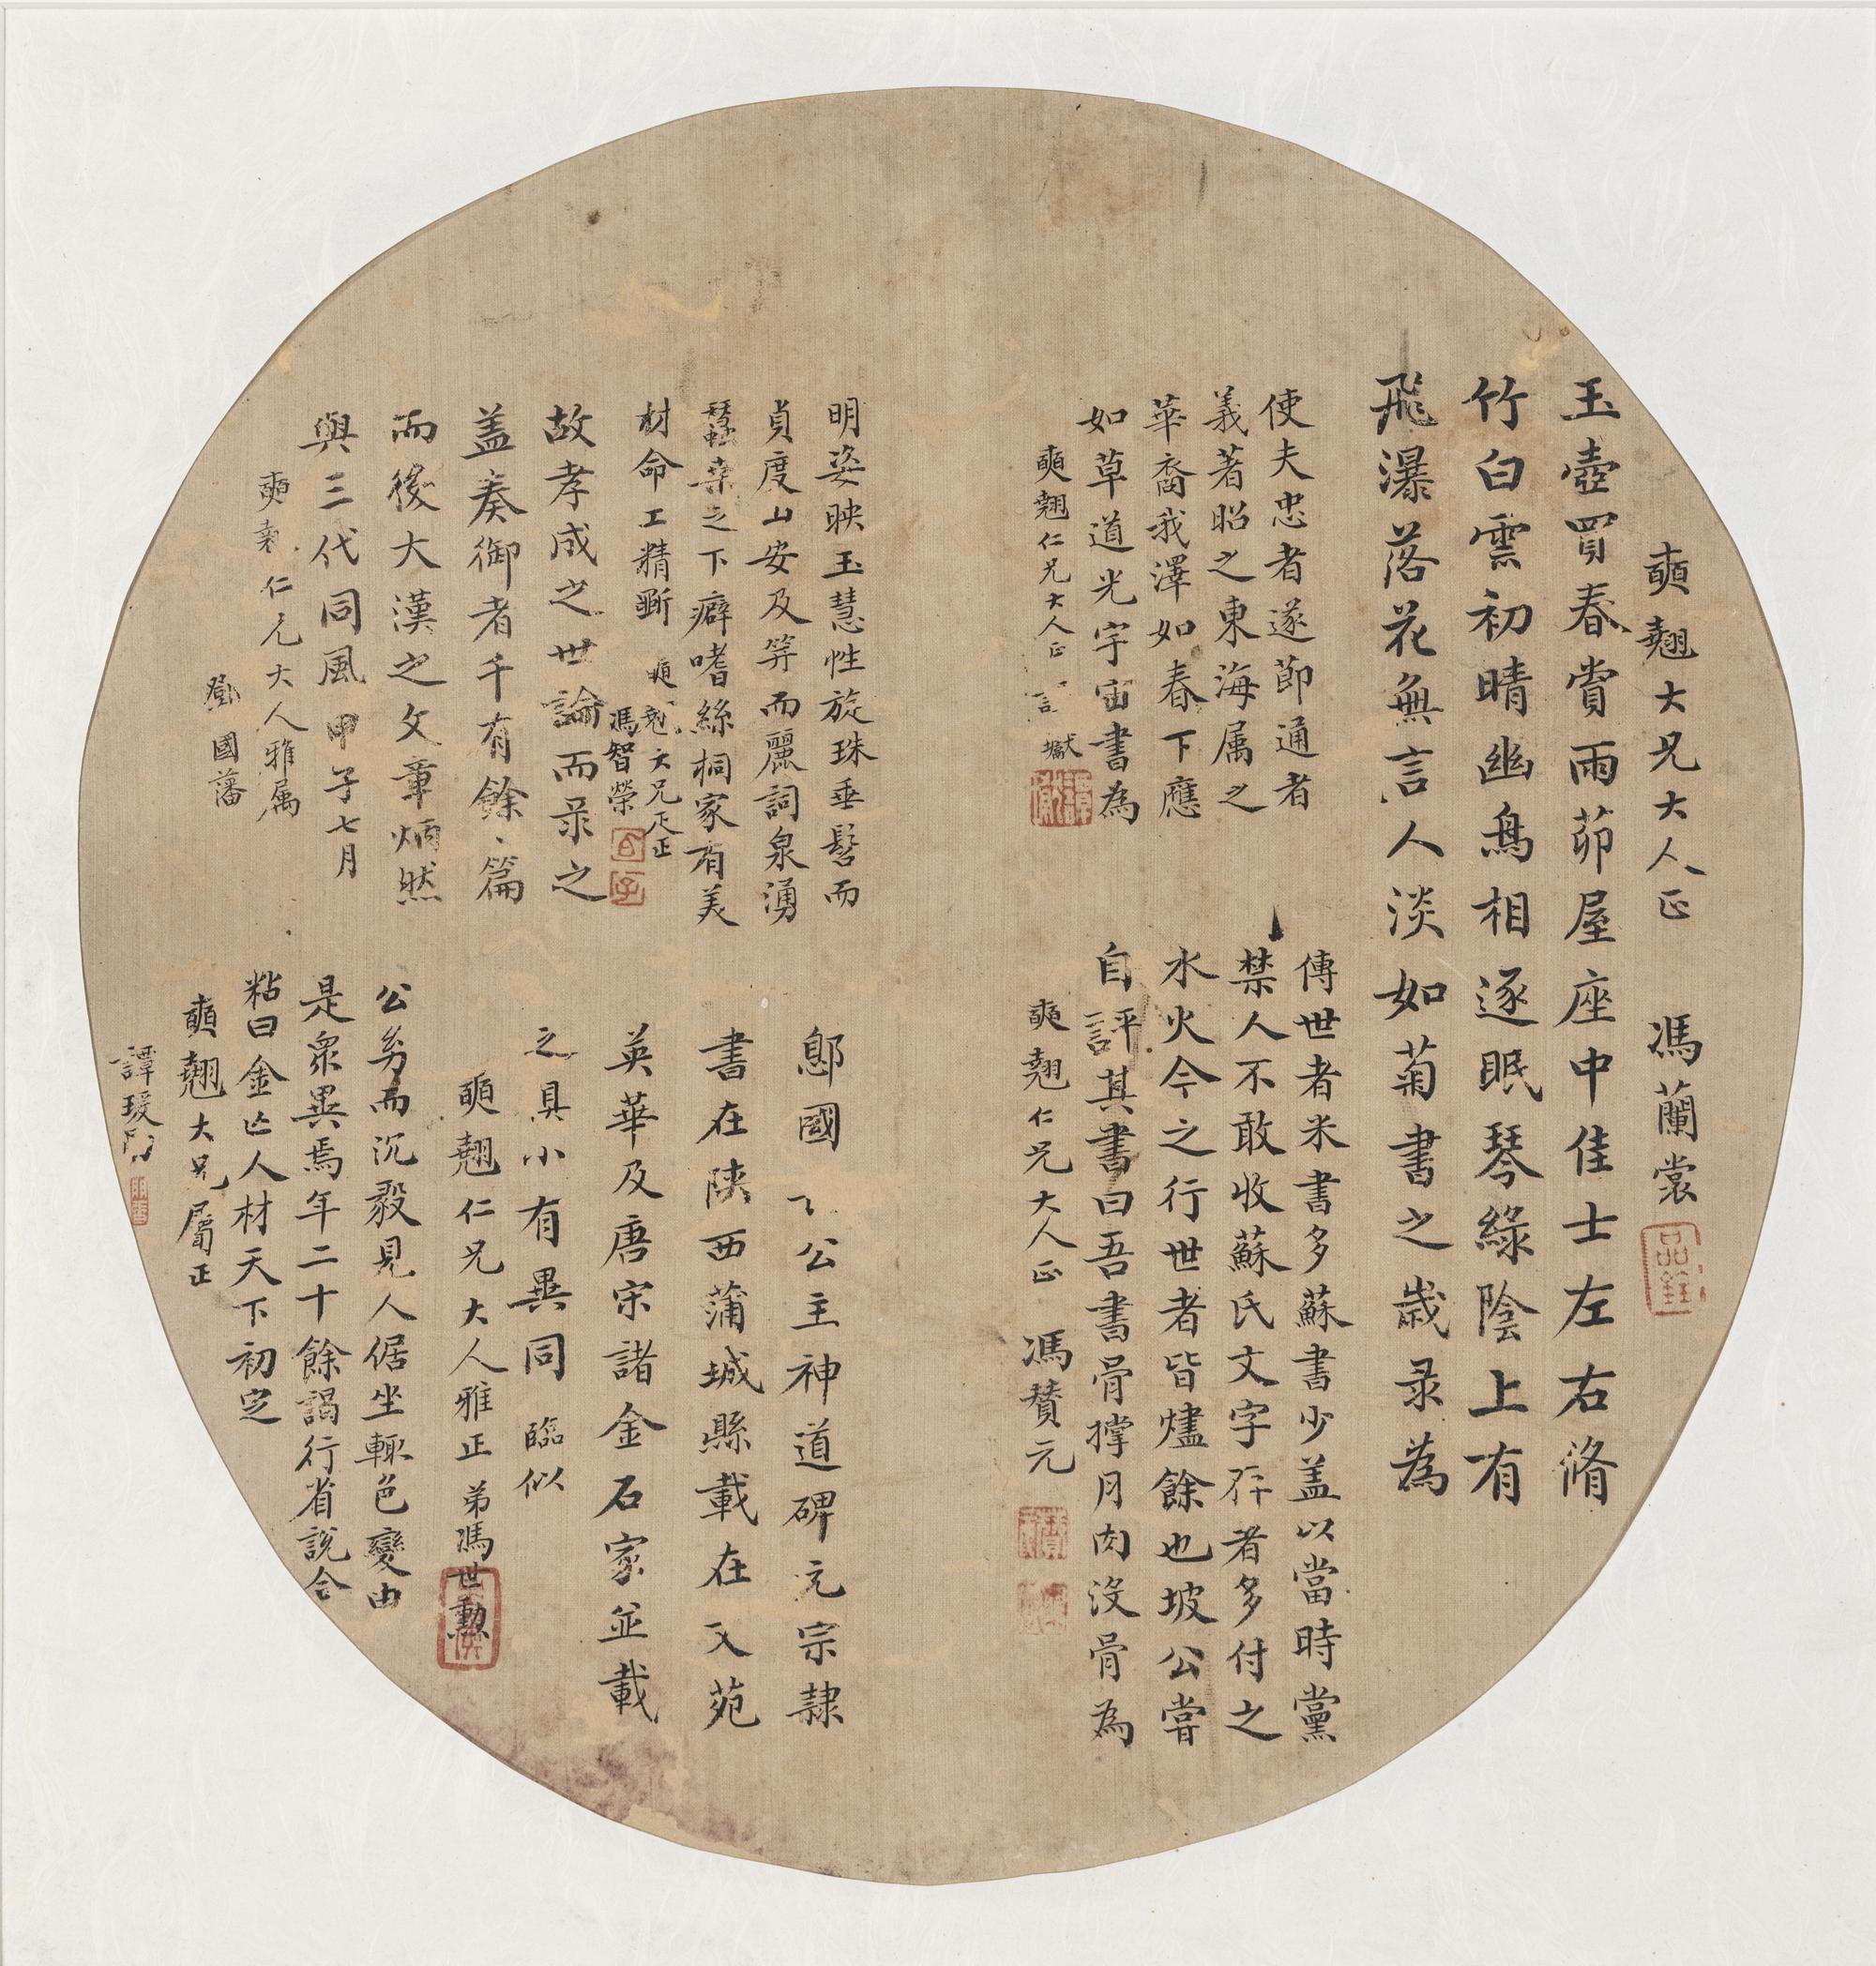 玉壺買春賞雨茆屋座中佳士左右脩
竹白雲初晴幽鳥相逐眠琴綠陰上有
飛瀑落花無言人淡如菊書之歲录為
奭翹大兄大人正 馮蘭裳
使夫忠者遂節通者
義著昭之東海属之
華裔我澤如春下應
如草道光宇宙書為
奭翹仁兄大人正
傳世者米書多蘇書少盖以當時黨
禁人不敢收蘇氏文字存者多付之
水火今之行世者皆燼餘也坡公嘗
自評其書曰吾書骨撑月肉没骨為
奭翹仁兄大人正 馮贊元
明姿映玉慧性旋珠垂髫而
貞度山安及笄而麗詞泉湧
蠶桒之下癖嗜絲桐家有美
材命工精斲
大兄疋正
馮智榮
故孝成之世論而录之
盖奏御者千有餘、篇
而後大漢之文章炳然
與三代同風 甲子七月
奭 仁兄大人雅属
鄧國藩
鄎國 公主神道碑元宗隷
書在陕西蒲城縣載在文苑
英華及唐宋諸金石家並載
之具小有異同 臨似
奭翹仁兄大人雅正 弟馮世勳
公劣而沉毅見人倨坐輒色變由
是眾異焉年二十餘謁行省説令
粘曰金亡人材天下初定
奭翹大兄屬正
譚瑗